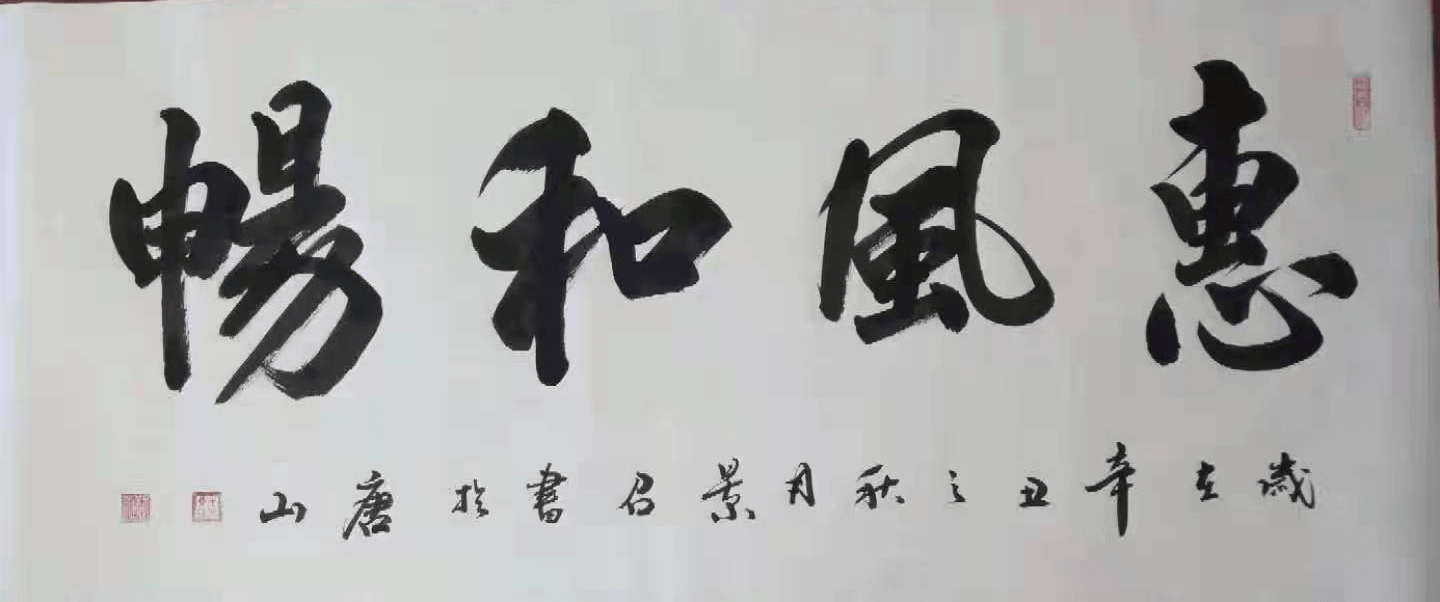 惠風和暢
歲在辛丑之秋月景召書於唐山